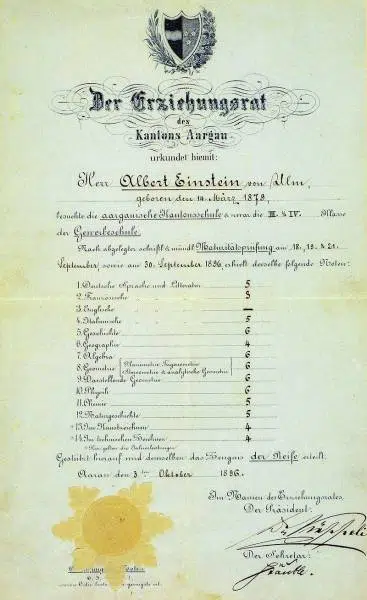 Der Erziehungsrat
des
Kantons Aargau
urkundet hiemit:
Herr Albert Einstein von Ulm,
geboren den 14. März 1879,
besuchte die aargauische Kantonsschule & zwar die III. & IV. Klasse
der Gewerbeschule.
Nach abgelegter schriftl. & mündl. Maturitätsprüfung am 18., 19. & 21.
September, sowie am 30. September 1896, erhielt derselbe folgende Noten:
1. Deutsche Sprache und Litteratur 5
2. Französische 3
3. Englische —
4. Italienische 5
5. Geschichte 6
6. Geographie 4
7. Algebra 6
8. Geometrie Planimetrie, Trigonometrie Stereometrie & analytische Geometrie 6
9. Darstellende Geometrie 6
10. Physik 6
11. Chemie 5
12. Naturgeschichte 5
*13. Im Kunstzeichnen 4
*14. Im technischen Zeichnen 4
* Hier gelten die Jahresleistungen.
Gestützt hierauf wird demselben das Zeugnis der Reife erteilt.
Aarau den 3ten Oktober 1896.
Im Namen des Erziehungsrates,
Der Präsident:
Der Sekretär: